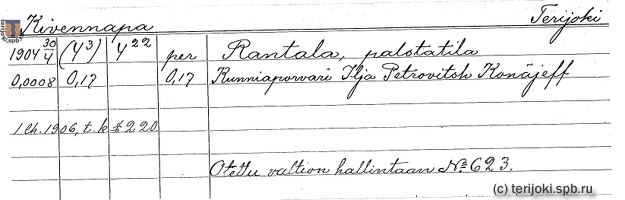 Kivennapa Terijoki
1904 30/4 (4³) 4²² per Rantala, palstatila
0,0008 0,17 0,17 Kunniaporvari Ilja Petrovitsh Konäjeff
1 lh. 1906, t.k. § 220.
Otettu valtion hallintaan № 623.
(c) terijoki.spb.ru